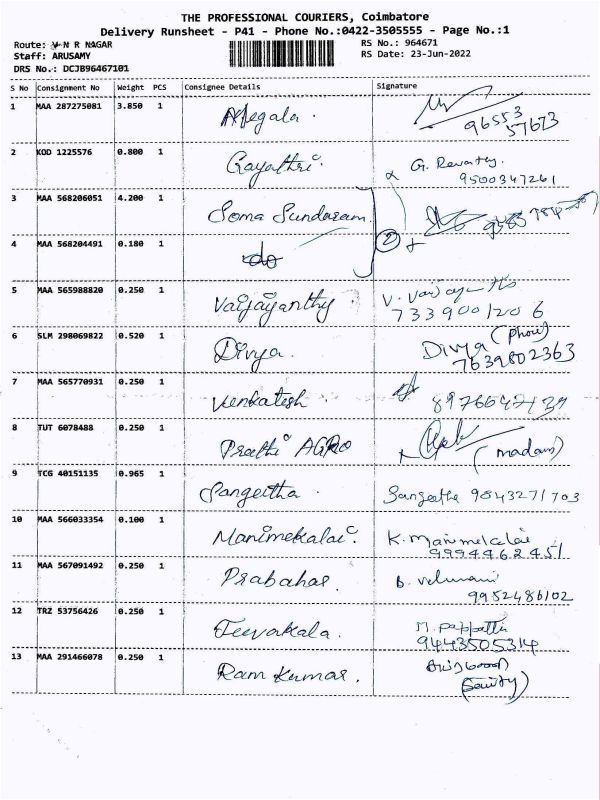 THE PROFESSIONAL COURIERS, Coimbatore
Delivery Runsheet - P41 - Phone No.:0422-3505555 - Page No.:1
Route: V N R NAGAR
RS No.: 964671
Staff: ARUSAMY
RS Date: 23-Jun-2022
DRS No.: DCJB96467101
S No Consignment No Weight PCS Consignee Details Signature
1 MAA 287275081 3.850 1 96553
57673
2 KOD 1225576 0.800 1 Gayathri G. Revathy.
9500347261
3 MAA 568206051 4.200 1 Soma Sundaram
4 MAA 568204491 0.180 1 do 2
5 MAA 565988820 0.250 1 Vaijayanthy. V. Vaijayanthi
7339001206
6 SLM 298069822 0.520 1 Divya. Divya (phone)
7639802363
7 MAA 565770931 0.250 1 Venkatesh.
8 TUT 6078488 0.250 1 Prathi AGRO (madam)
9 TCG 40151135 0.965 1 Sangeetha. Sangeetha 9543271703
10 MAA 566033354 0.100 1 Manimekalai. K. Manimekalai
9994462451
11 MAA 567091492 0.250 1 Prabahar. B. Velumani
9952486102
12 TRZ 53756426 0.250 1 Jeevakala. M. Pappathi
9443505314
13 MAA 291466078 0.250 1 Ram Kumar.